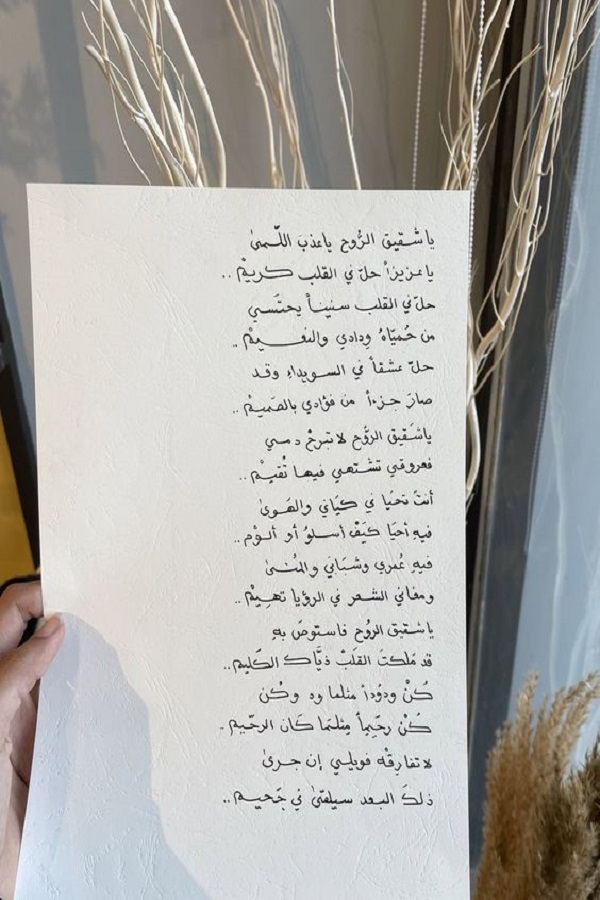 يا شَقيق الرُّوح يا عذبَ اللّمىٰ
يا عزيزاً حلّ في القلب كريمْ ..
حلّ في القلب سنيناً يحتَسي
من حُميّاهُ وِدادي والنعيمْ ..
حلّ عشقاً في السويداءِ وقد
صارَ جزءاً من فؤادي بالصَميمْ ..
يا شَقيق الرُّوح لا تبرحْ دمي
فعروقي تشتهي فيها تُقيمْ ..
أنتَ تحيَا في كيَاني والهَوىٰ
فيهِ أحيَا كيَفْ أسلوُ أو ألوْم ..
فيهِ عُمري وشبَابي والمُنىٰ
ومغاني الشعر في الرؤيا تهيِمْ ..
يا شقيق الرُوح فاستوصِ بهِ
قد مَلكتَ القلَبْ ذيَّاكَ الكَليم ..
كُنْ ودوُداً مثلما ودَ وكُن
كُنْ رحَيِماً مِثلمَا كَان الرحَيم ..
لا تفارِقْه فويلي إن جرىٰ
ذلكَ البعد سيلقىٰ في جَحيم ..